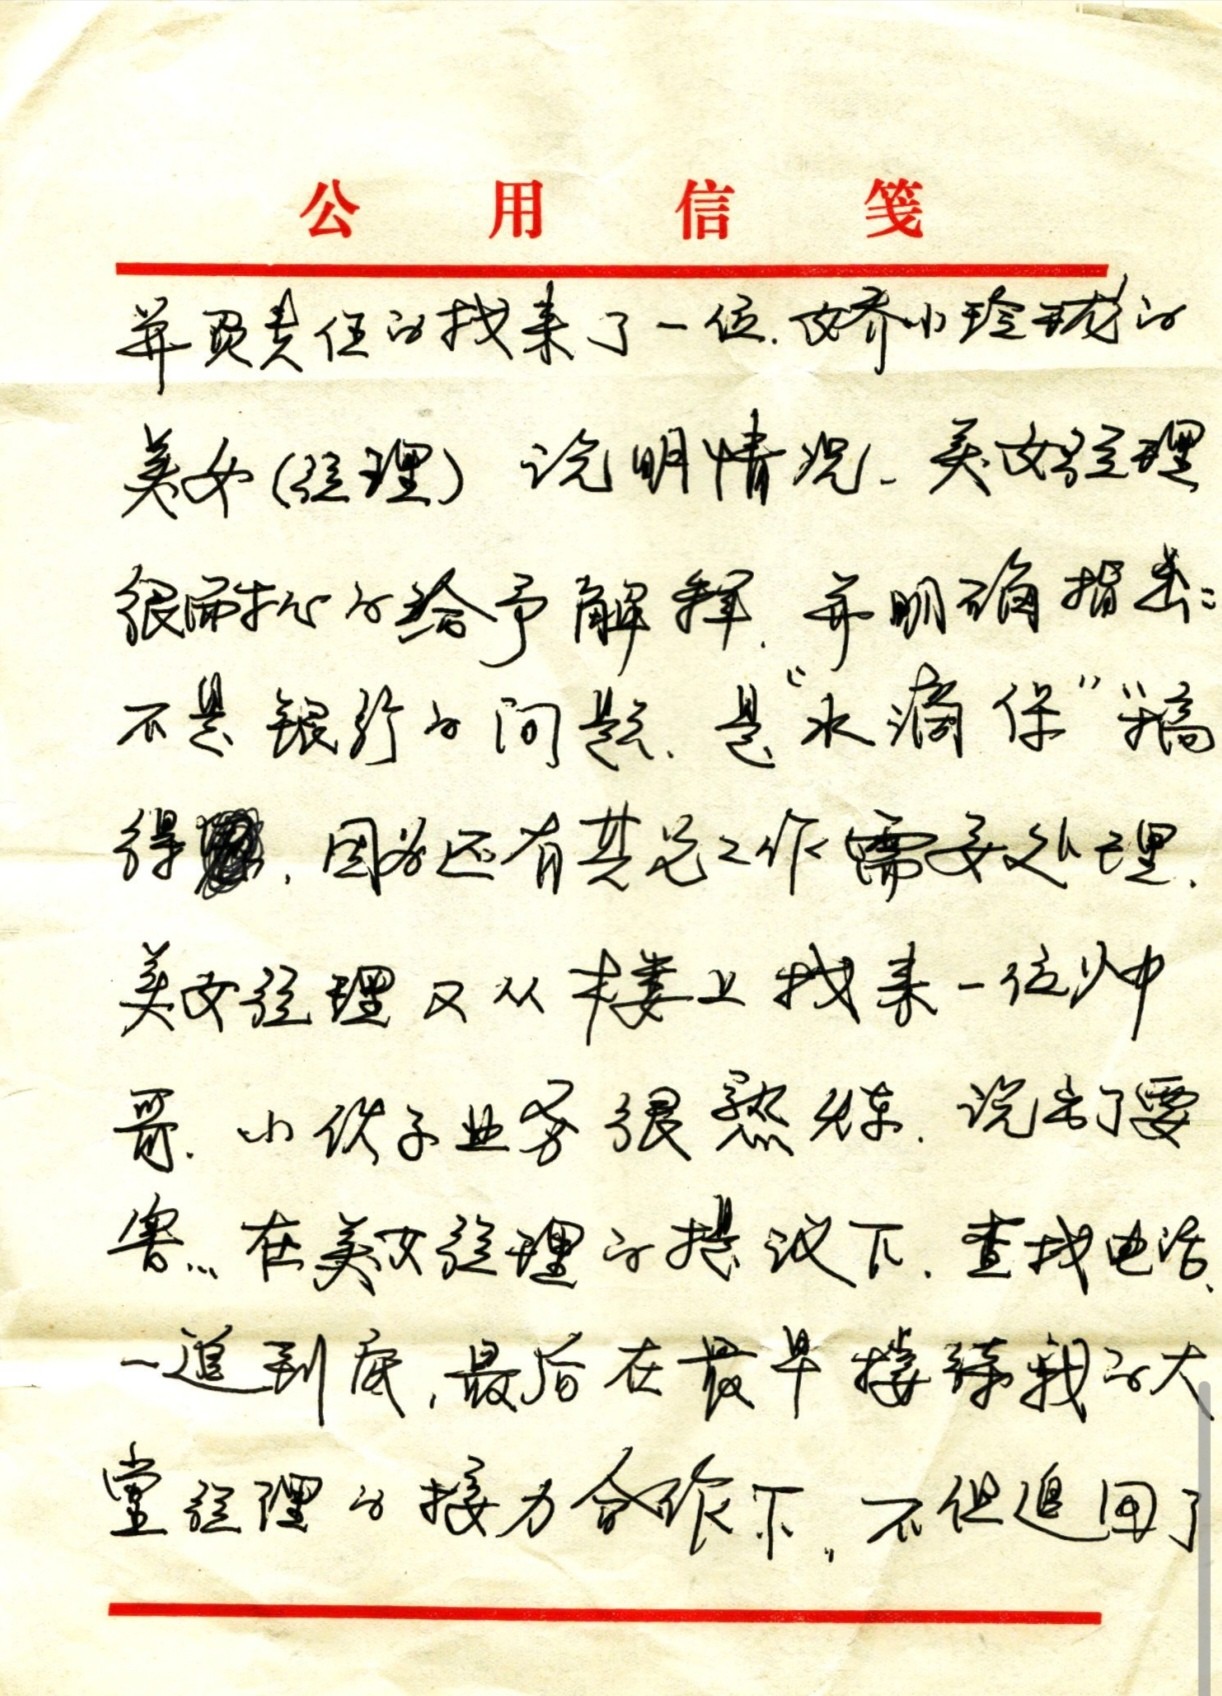 公用信笺
并负责任的找来了一位.娇小玲珑的
美女(经理) 说明情况.美女经理
很耐心的给予解释.并明确指出:
不是银行的问题.是"水滴保""搞
得 .因为还有其它工作需要处理.
美女经理又从楼上找来一位帅
哥.小伙子业务很熟练.说出了要
害...在美女经理的提议下.查找电话.
一追到底,最后在最早接待我的大
堂经理的接力合作下.,不但追回了